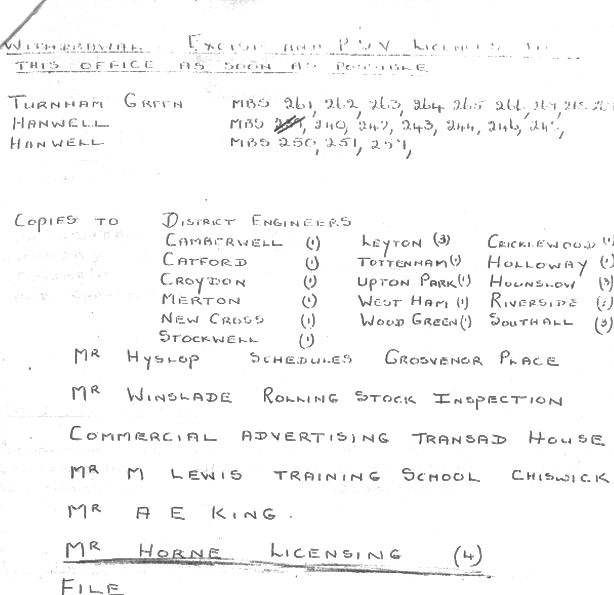 WITHDRAWAL EXCISE AND PSV LICENCES TO
THIS OFFICE AS SOON AS POSSIBLE
TURNHAM GREEN MBS 261, 262, 263, 264 265 266, 267, 268
HANWELL MBS 240, 242, 243, 244, 246,
HANWELL MBS 250, 251, 257,
COPIES TO DISTRICT ENGINEERS
CAMBERWELL (1) LEYTON (3) CRICKLEWOOD (1)
CATFORD (1) TOTTENHAM (1) HOLLOWAY (1)
CROYDON (1) UPTON PARK (1) HOUNSLOW (3)
MERTON (1) WEST HAM (1) RIVERSIDE
NEW CROSS (1) WOOD GREEN (1) SOUTHALL (3)
STOCKWELL (1)
MR HYSLOP SCHEDULES GROSVENOR PLACE
MR WINSLADE ROLLING STOCK INSPECTION
COMMERCIAL ADVERTISING TRANSAD HOUSE
MR M LEWIS TRAINING SCHOOL CHISWICK
MR A E KING.
MR HORNE LICENSING (4)
FILE